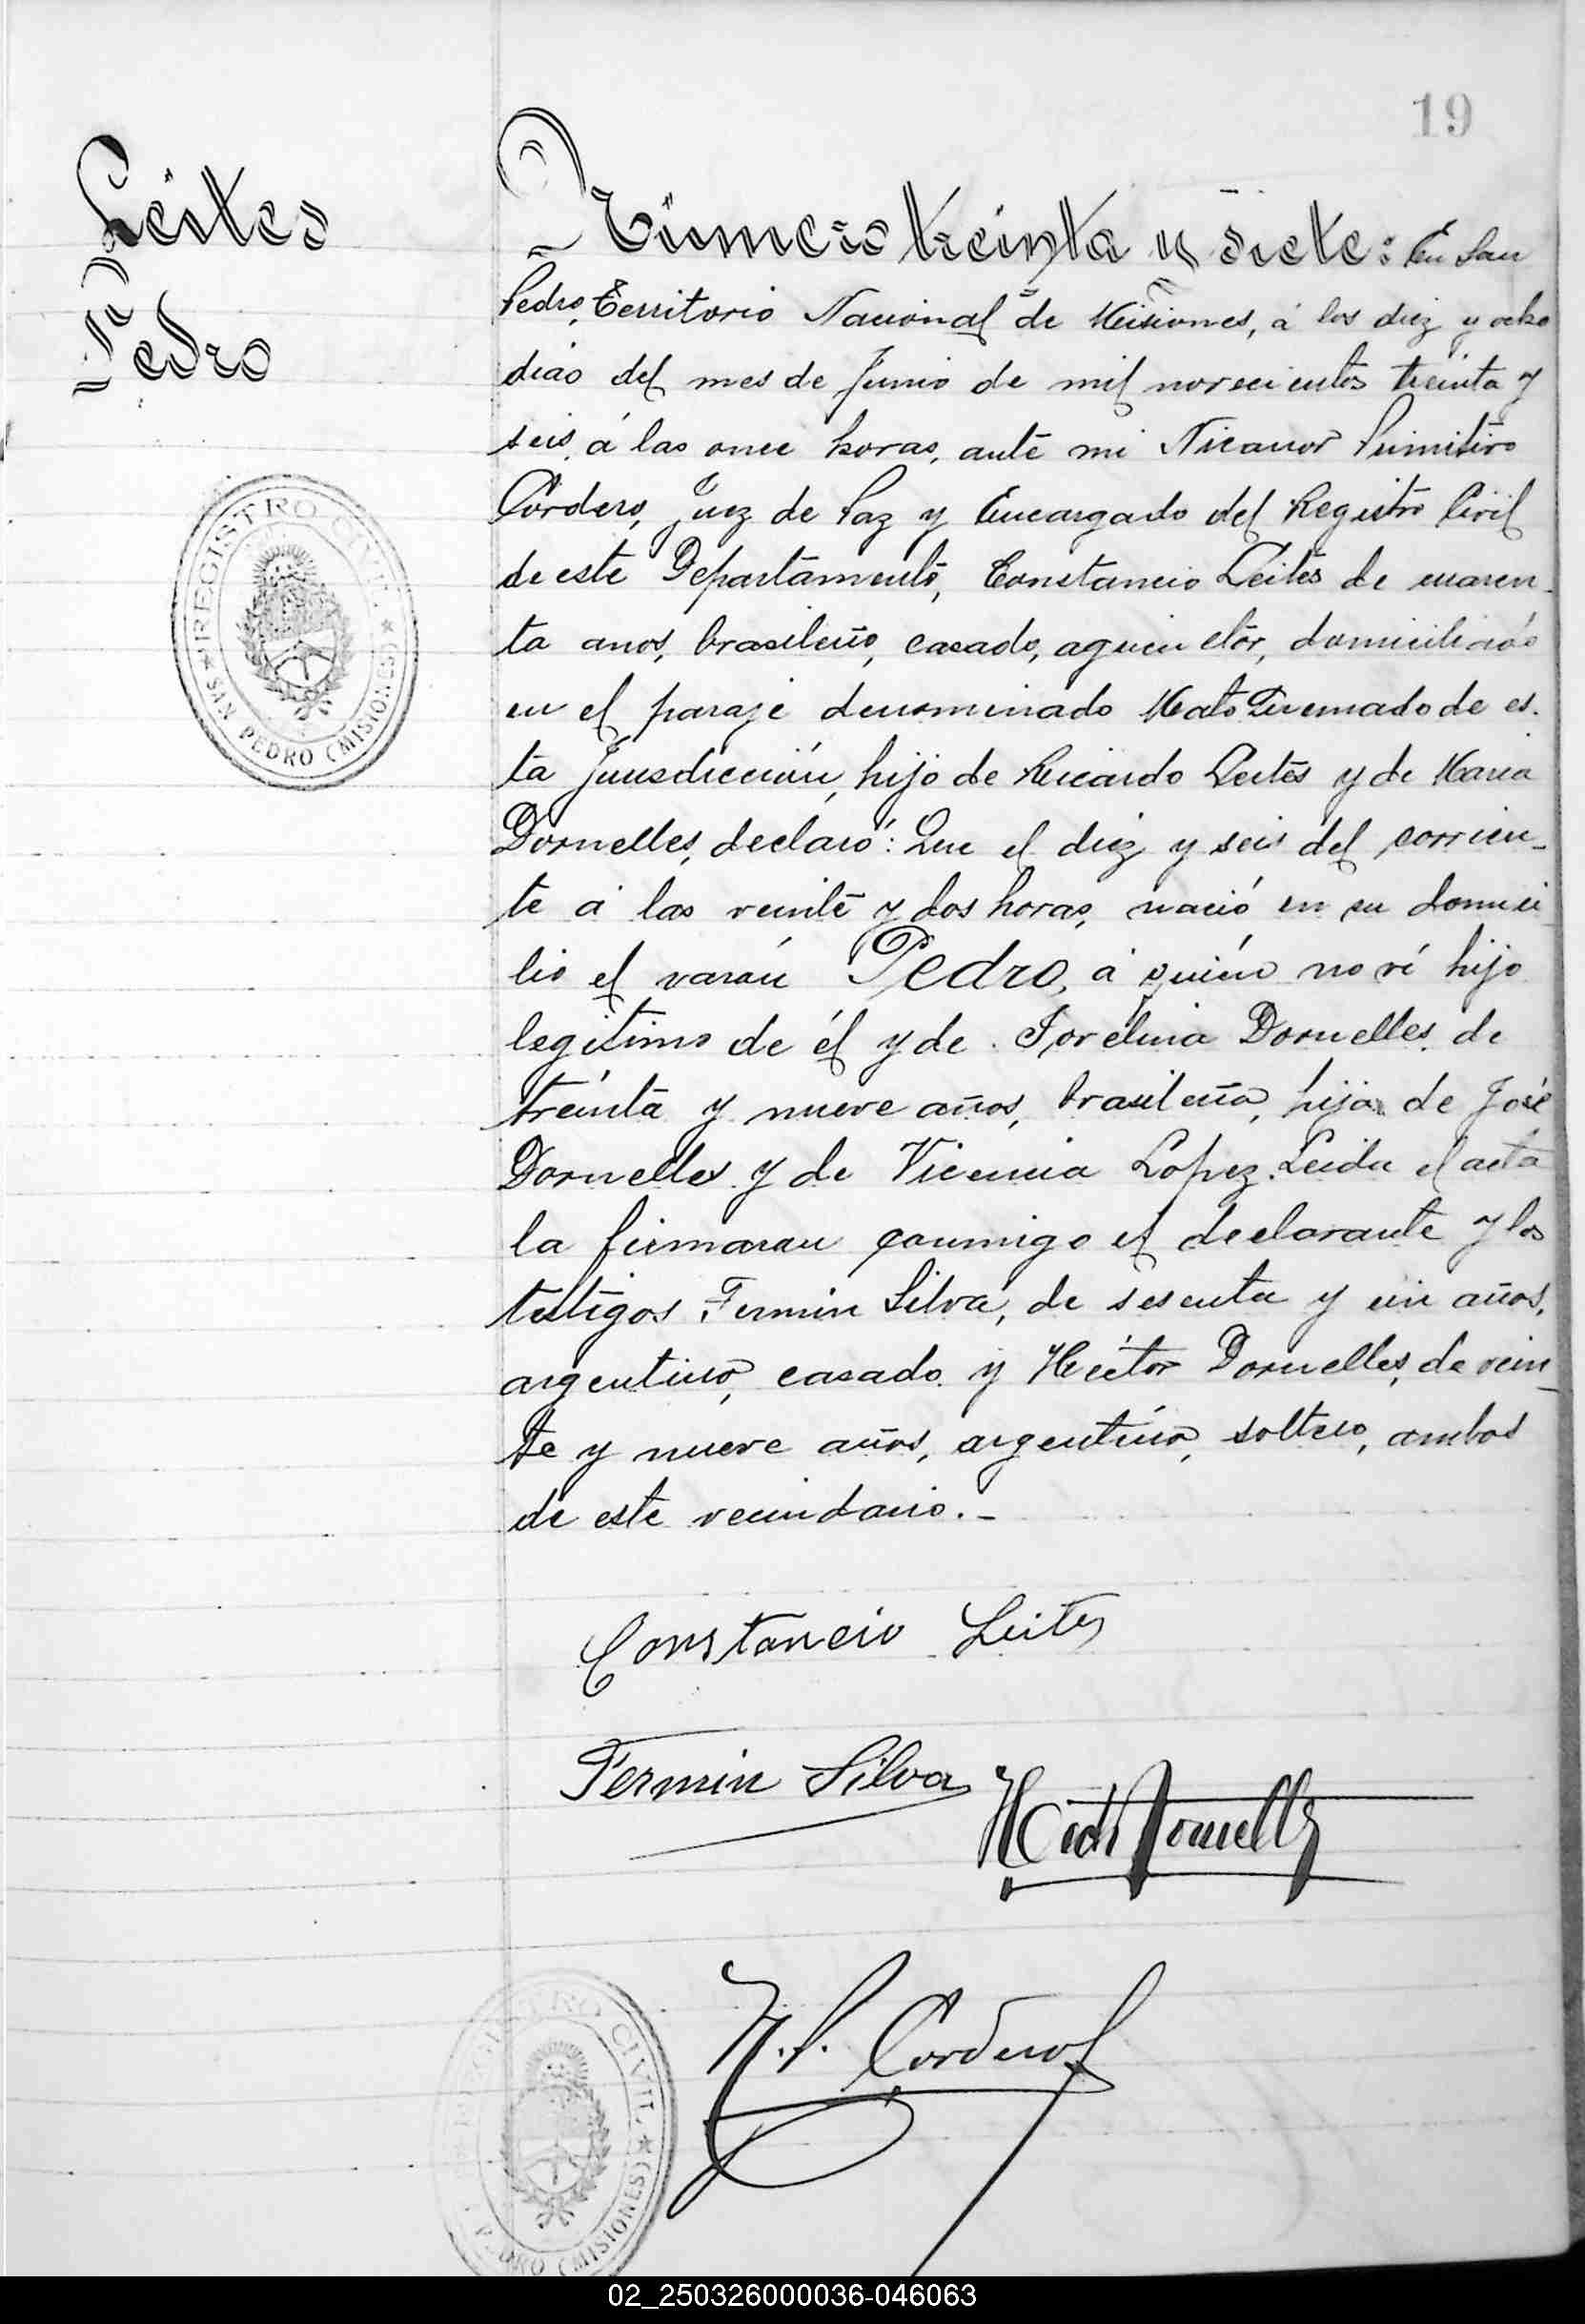 19
Leites
Pedro
Número treinta y siete: En San
Pedro, Territorio Nacional de Misiones, á los diez y ocho
dias del mes de Junio de mil novecientos treinta y
seis, á las once horas, ante mi Nicanor Primitivo
Cordero, Juez de Paz y Encargado del Registro Civil
de este Departamento, Constancio Leites de cuaren-
ta anos, brasileño, casado, agricultor, domiciliado
en el paraje denominado Mato Quemado de es-
ta Jurisdicción, hijo de Ricardo Leites y de Maria
Dornelles, declaró: Que el diez y seis del corrien-
te á las veinte y dos horas, nació en su domici
lio el varón Pedro, á quién no ví hijo
legitimo de él y de Jovelina Dornelles, de
treinta y nueve años, brasileña, hija de José
Dornelles y de Vicencia Lopez. Leida el acta
la firmaran conmigo el declarante y los
testigos Fermin Silva, de sesenta y un años,
argentino, casado y Héctor Dornelles, de vein-
te y nueve años, argentino, soltero, ambos
de este vecindario.-
Constancio Leites
Fermin Silva
Hector Dornelles
N. P. Cordero
REGISTRO CIVIL
SAN PEDRO (MISIONES)
REGISTRO CIVIL
PEDRO (MISIONES)
02_250326000036-046063